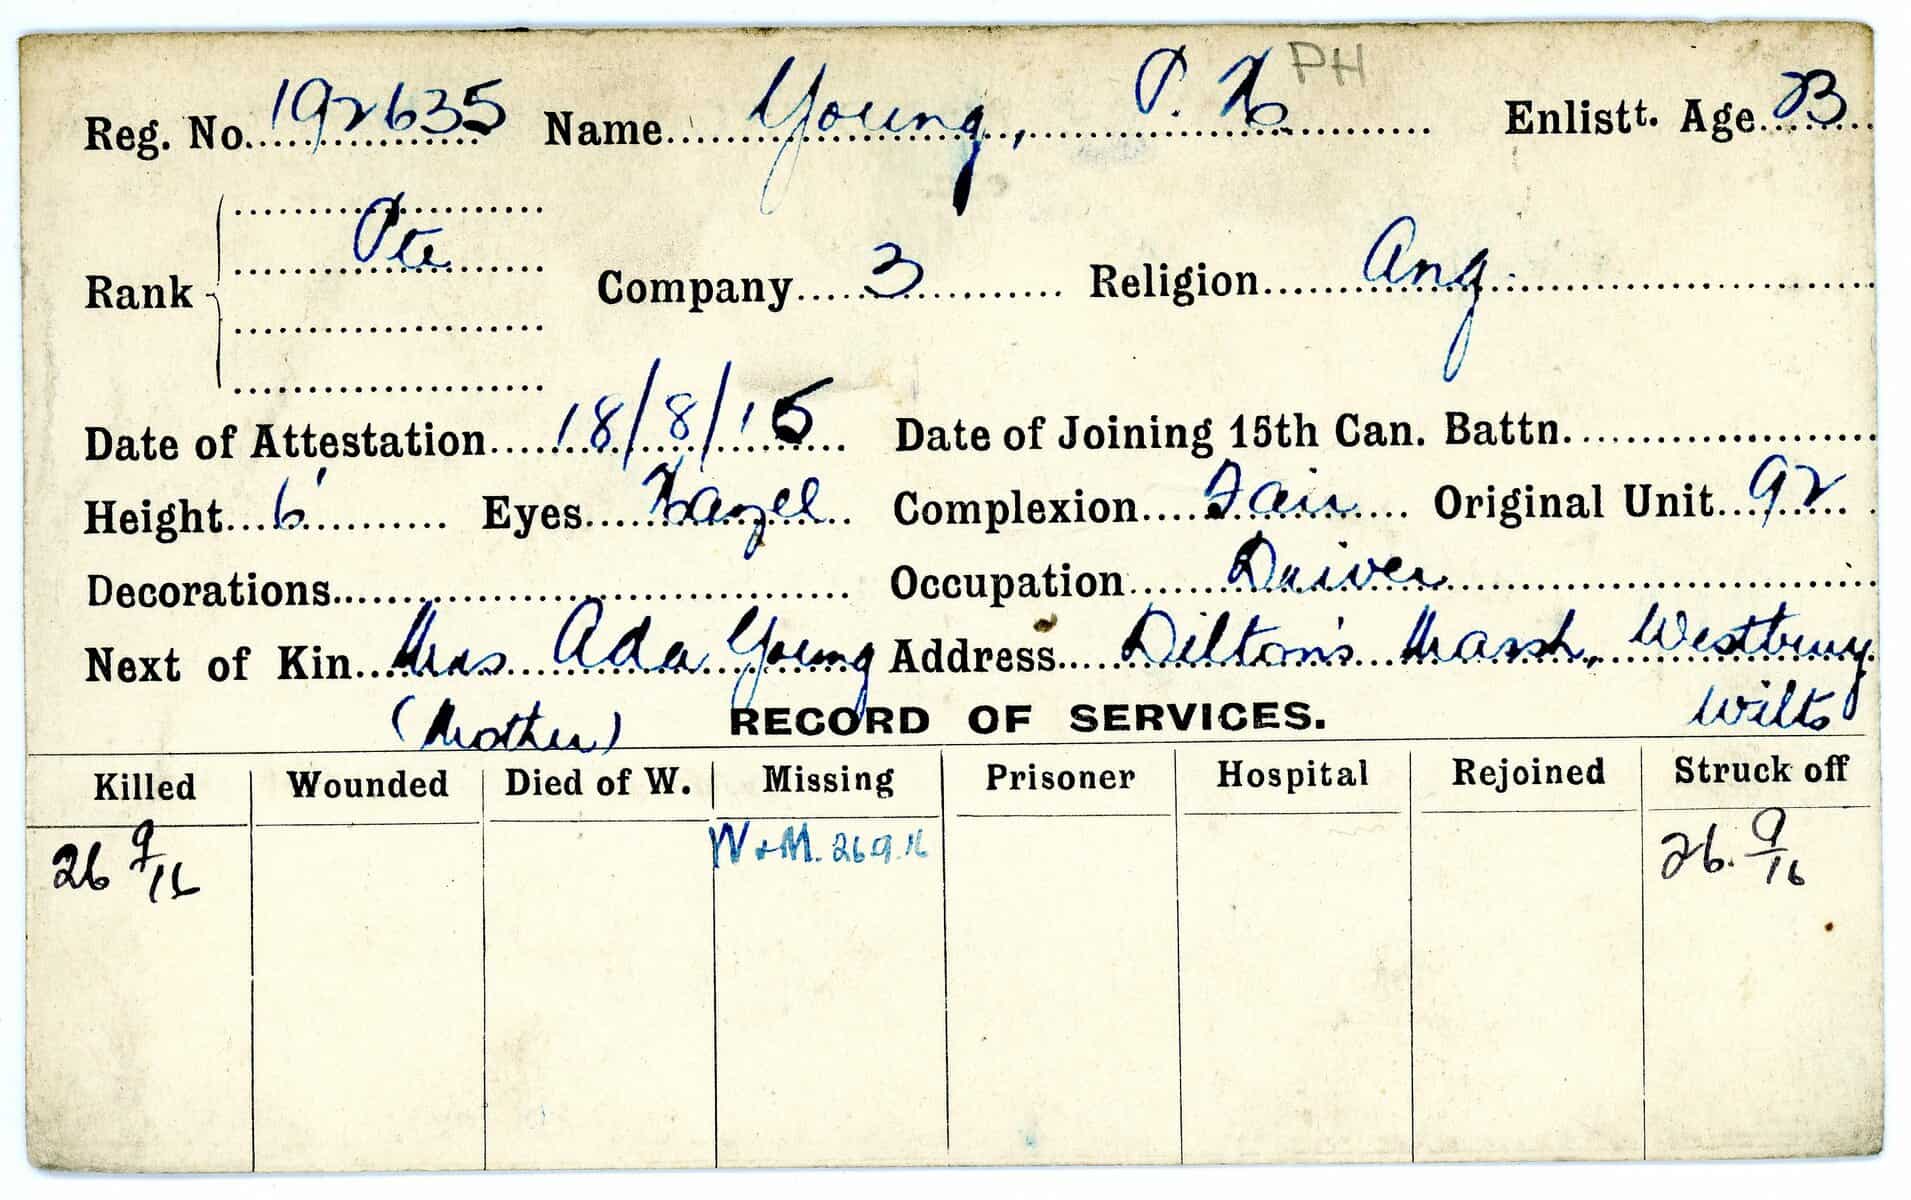 Reg. No. 192635 Name Young, P. H. PH Enlistt. Age 23
Rank Pte Company 3 Religion Ang.
Date of Attestation 18/8/15 Date of Joining 15th Can. Battn.
Height 6' Eyes Hazel Complexion Fair Original Unit 92
Decorations Occupation Driver
Next of Kin Mrs Ada Young Address Dilton's Marsh, Westbury
(Mother) RECORD OF SERVICES. Wilts
Killed Wounded Died of W. Missing Prisoner Hospital Rejoined Struck off
26 9/16 W & M. 26.9.16 26. 9/16